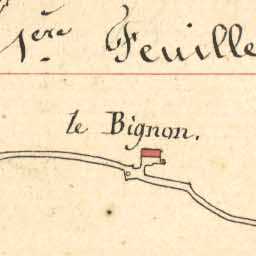 1ère Feuille
le Bignon.